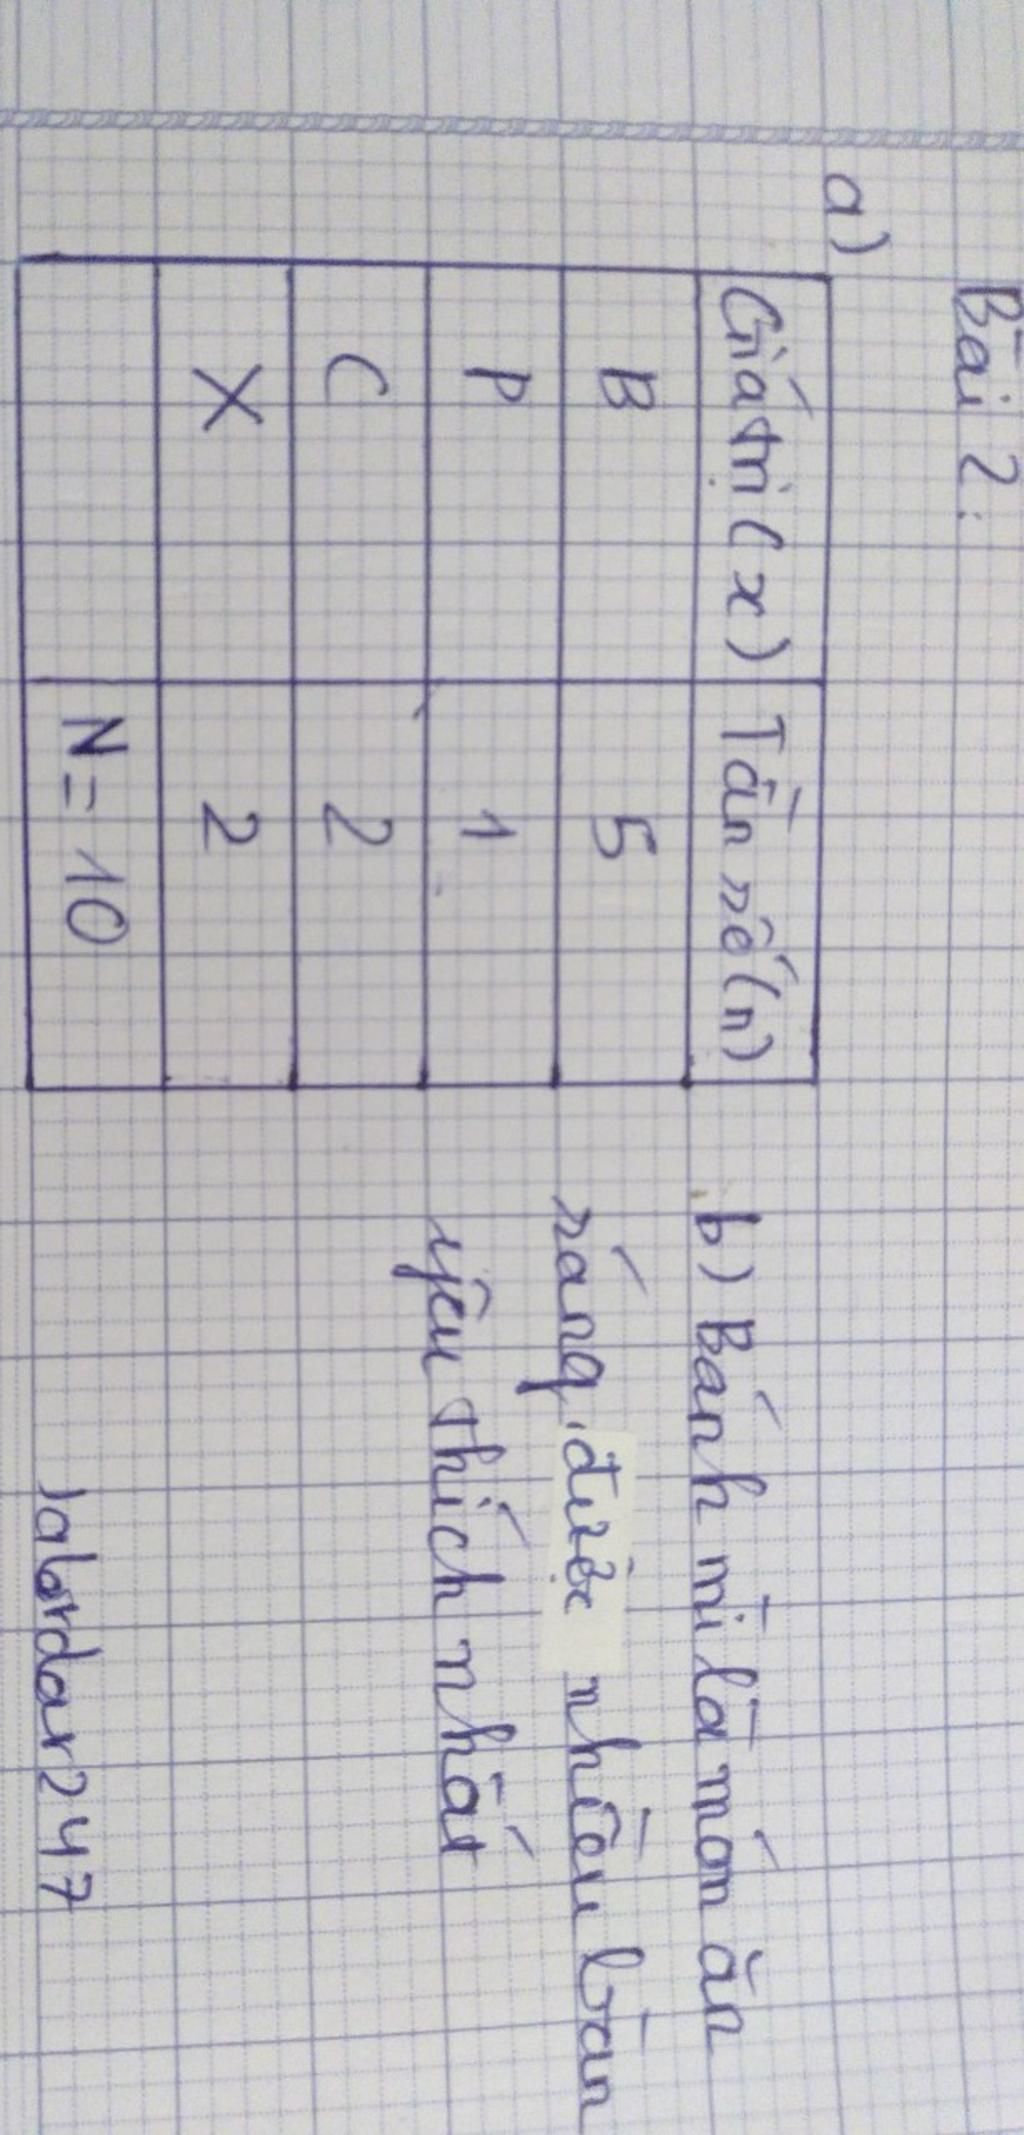 Bài 2:
a)
Giá trị (x) Tần số (n)
B 5
P 1
C 2
X 2
N = 10
b) Bánh mì là món ăn
sáng được nhiều bạn
yêu thích nhất